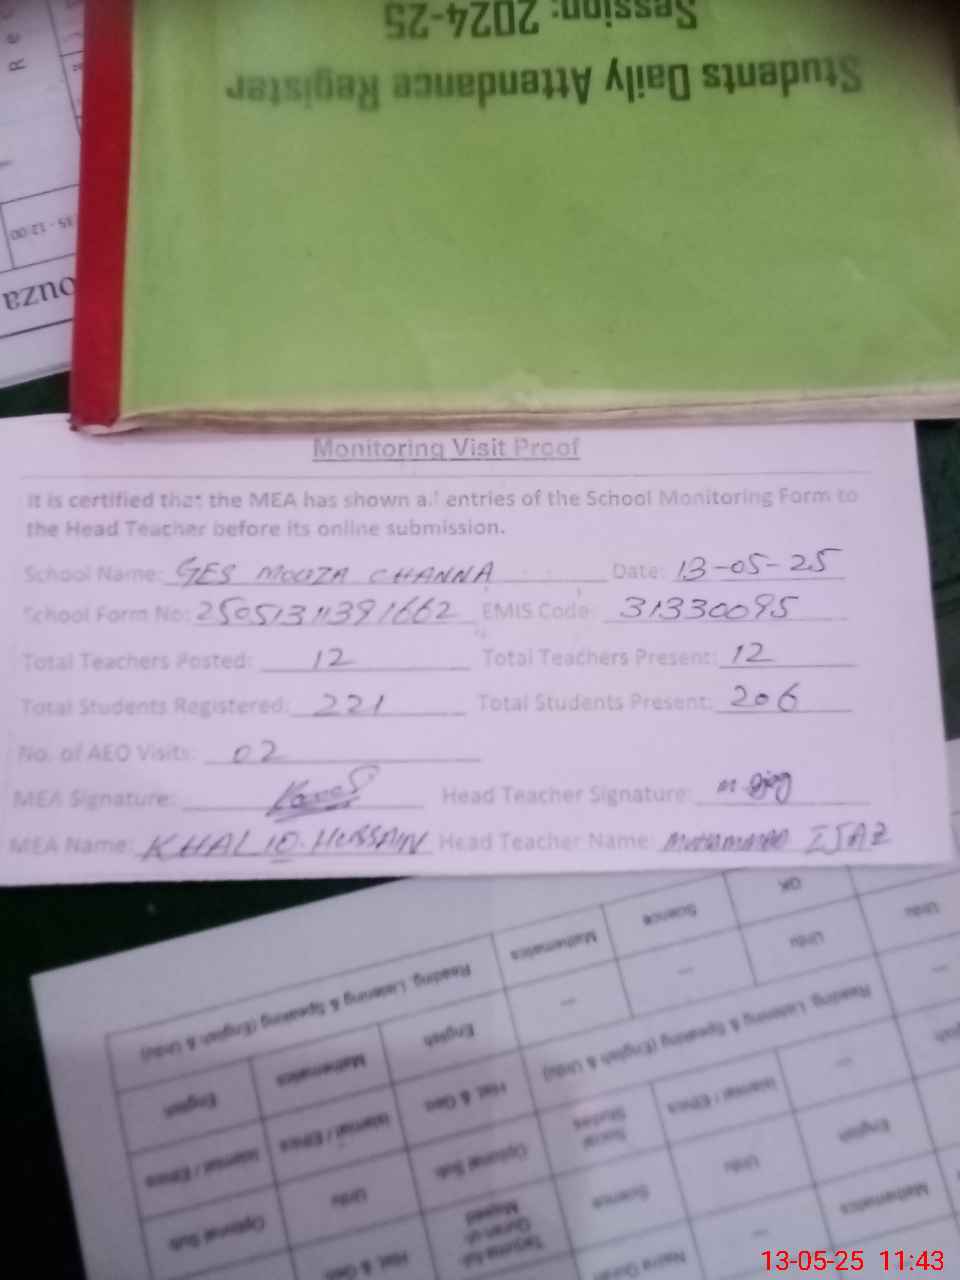 Students Daily Attendance Register
Session: 2024-25
ouza
Monitoring Visit Proof
It is certified that the MEA has shown all entries of the School Monitoring Form to
the Head Teacher before its online submission.
School Name: GES MOUZA CHANNA Date: 13-05-25
School Form No: 25051311391662 EMIS Code: 31330095
Total Teachers Posted: 12 Total Teachers Present: 12
Total Students Registered: 221 Total Students Present: 206
No. of AEO Visits: 02
MEA Signature: Head Teacher Signature: M. Ijaz
MEA Name: KHALID HUSSAIN Head Teacher Name: MUHAMMAD IJAZ
Urdu
OK
Science
Mathematics
Reading, Listening & Speaking (English & Urdu)
Urdu
English
Reading, Listening & Speaking (English & Urdu)
Mathematics
English
Islamiat / Ethics
Hist. & Geo.
Islamiat / Ethics
Islamiat / Ethics
English
Social Studies
Optional Sub.
Urdu
Optional Sub.
Mathematics
Urdu
Science
Hist. & Geo.
13-05-25 11:43